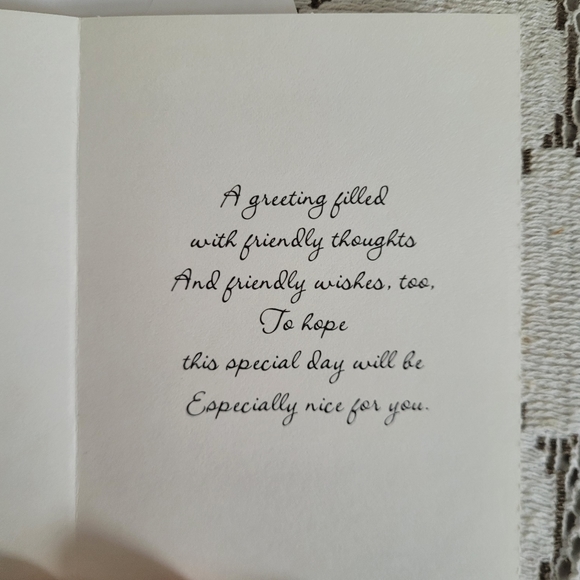 A greeting filled
with friendly thoughts
And friendly wishes, too,
To hope
this special day will be
Especially nice for you.